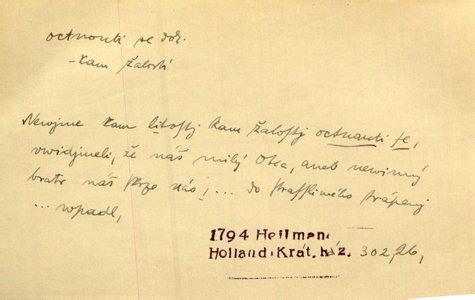 octnouti se dok.
- kam žalostí
Nevojme kam litostj kam žalostj octnauti se,
uwidjmeli, že náš milý Otec, aneb newinný
bratr náš skrze nás! ... do strasslivého trápenj
... wpadl,
1794 Heilman:
Holland. Krát. ház. 302,26,